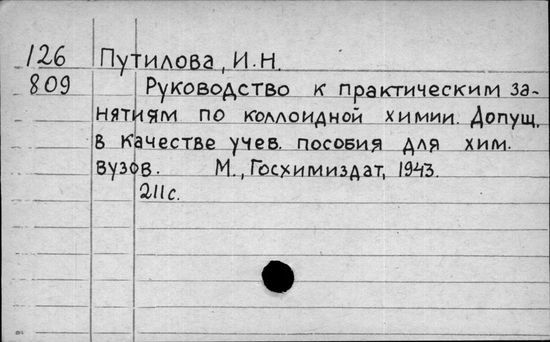 126 Путилова, И.Н.
809 Руководство к практическим за-
нятиям по коллоидной химии. Допущ.
в качестве учев. пособия для хим.
вузов. М., Госхимиздат, 1943.
211с.